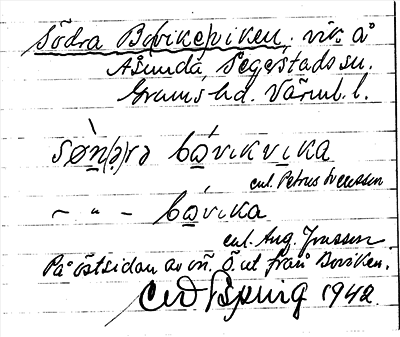 Södra Bo(vike)viken. vik: å
Åsunda, Segerstads sn.
Grums hd. Värml. l.
søn(ə)rə båvikvika
enl. Petrus Svensson
– " – båvika
enl. Aug. Jonsson
På östsidan av ön. ö. ut från Boviken.
1942